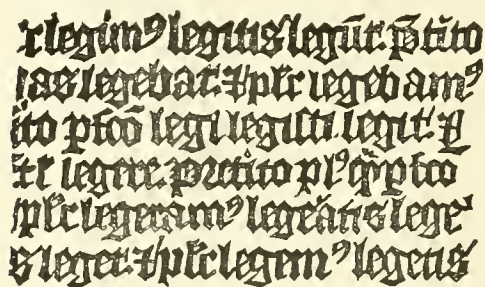 r legim⁹ legitis legūt. p̄tito
bas legebat. ⁊ pl̄r legebam⁹
ito pfcō legi legisti legit. ⁊
legere. pretito pl⁹ q̄ pfcō
pl̄r legeram⁹ legeātis lege
s leget. ⁊ pl̄r legem⁹ legetis